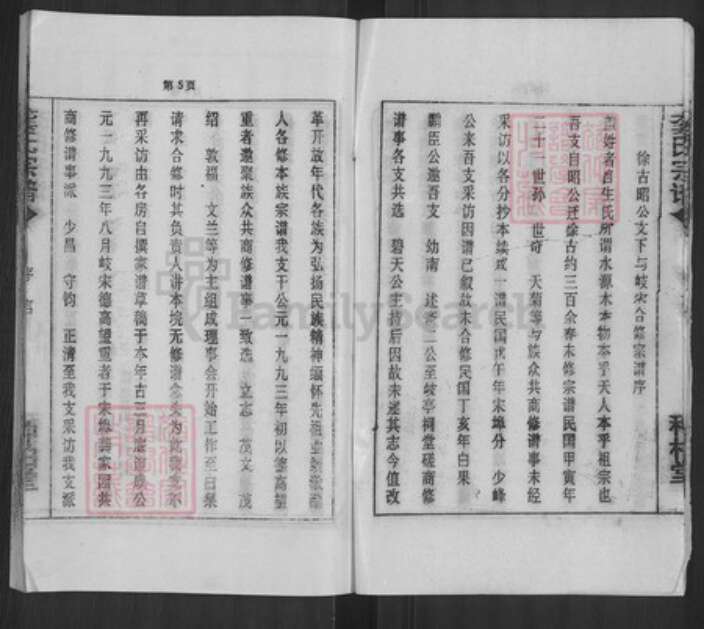 徐古昭公文下与岐宋合修宗谱序
姓者自生氏所谓水源木本物本乎天人本乎祖宗也
吾支自昭公迁徐古约三百余春未修宗谱民国甲寅年
二十一世孙 世奇 天菊等与族众共商修谱事未经
采访以各分抄本续成一谱民国戊午年宋埠分 少峰
公来吾支采访因谱已叙故未合修民国丁亥年白果
鹏臣公邀吾支 幼南 述 二公至岐亭祠堂磋商修
谱事各支共选 碧天公主 后因故未遂其志今值改
第5页
革开放年代各族为弘扬民族精神缅怀先祖
人各修本族宗谱我支于公元一九九三年初以 高望
重者邀聚族众共商修谱事一致选 立志 茂文 茂
绍 敦福 文兰等为主组成理事会开始工作至白果
请求合修时其负责人讲本境无修谱念 为此我支
再采访由各房自撰家谱草稿于本年古三月底 成公
元一九九三年八月岐宋德高望重者于宋埠 家园共
商修谱事派 少昌 守钧 正清至我支采访我支派
李氏宗谱
FamilySearch